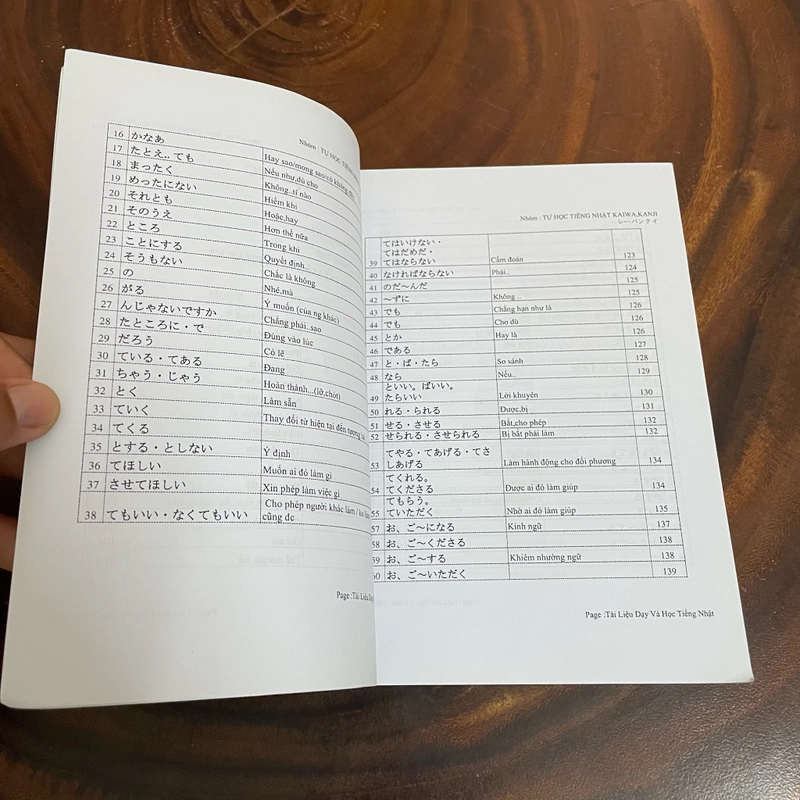 Nhóm : TỰ HỌC TIẾNG
16 かなあ Hay sao/mong sao/có không
17 たとえ.. ても Nếu như,dù cho
18 まったく Không..tí nào
19 めったにない Hiếm khi
20 それとも Hoặc,hay
21 そのうえ Hơn thế nữa
22 ところ Trong khi
23 ことにする Quyết định..
24 そうもない Chắc là không
25 の Nhé,mà
26 がる Ý muốn (của ng khác)
27 んじゃないですか Chẳng phải..sao
28 たところに・で Đúng vào lúc
29 だろう Có lẽ
30 ている・てある Đang
31 ちゃう・じゃう Hoàn thành...(lỡ,chót)
32 とく Làm sẵn
33 ていく Thay đổi từ hiện tại đến tương
34 てくる
35 とする・としない Ý định
36 てほしい Muốn ai đó làm gì
37 させてほしい Xin phép làm việc gì
38 てもいい・なくてもいい Cho phép người khác làm /
cũng đc
Page :Tài Liệu Dạy
Nhóm : TỰ HỌC TIẾNG NHẬT KAIWA,KANJI
レーバンクイ
てはいけない・
てはだめだ・
39 てはならない Cấm đoán 123
40 なければならない Phải.. 124
41 のだ〜んだ 125
42 〜ずに Không .. 125
43 でも Chẳng hạn như là 126
44 でも Cho dù 126
45 とか Hay là 126
46 である 127
47 と・ば・たら So sánh 128
48 なら Nếu.. 129
といい。ばいい。
49 たらいい Lời khuyên 130
50 れる・られる Được,bị 131
51 せる・させる Bắt,cho phép 132
52 せられる・させられる Bị bắt phải làm 132
てやる・てあげる・てさ
53 しあげる Làm hành động cho đối phương 134
てくれる。
54 てくださる Được ai đó làm giúp 134
てもらう。
55 ていただく Nhờ ai đó làm giúp 135
57 お、ご〜になる Kính ngữ 137
58 お、ご〜くださる 138
59 お、ご〜する Khiêm nhường ngữ 138
60 お、ご〜いただく 139
Page :Tài Liệu Dạy Và Học Tiếng Nhật